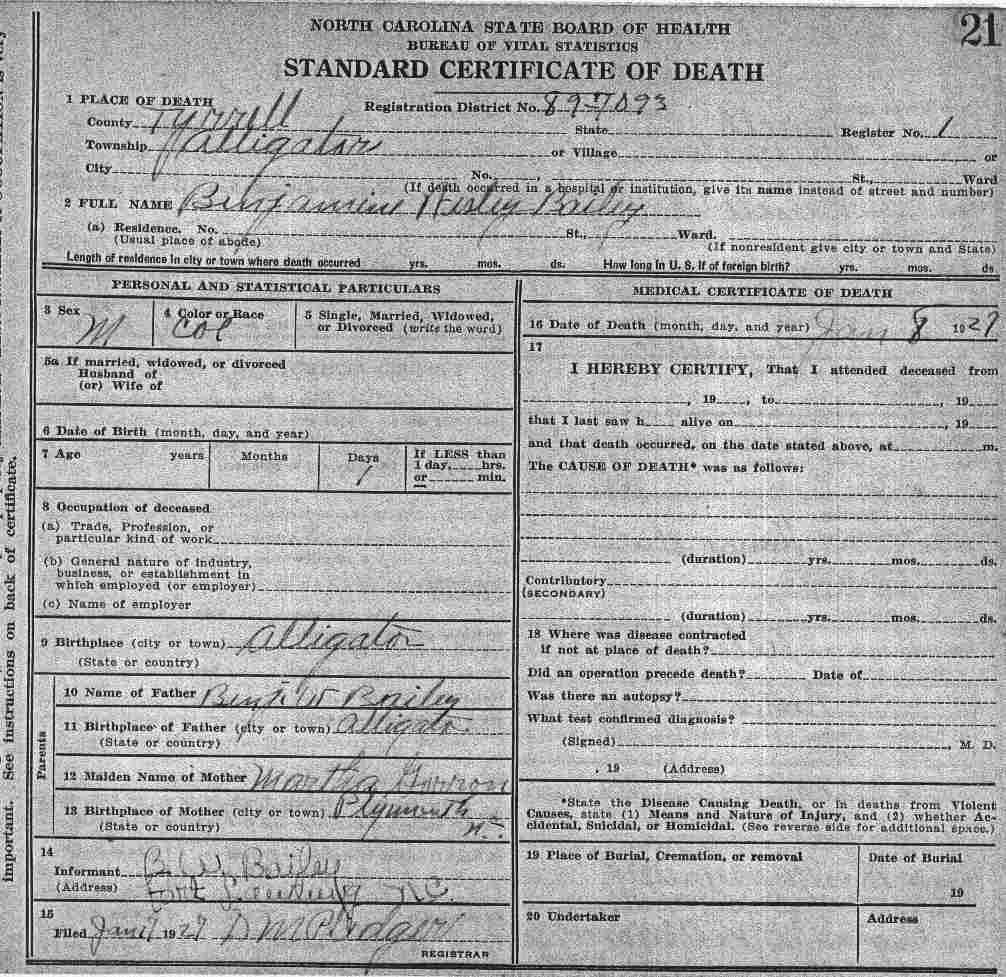 21
NORTH CAROLINA STATE BOARD OF HEALTH
BUREAU OF VITAL STATISTICS
STANDARD CERTIFICATE OF DEATH
1 PLACE OF DEATH Registration District No. 89-7093
County Tyrrell State Register No. 1
Township Alligator or Village or
City No. , St., Ward
(If death occurred in a hospital or institution, give its name instead of street and number)
2 FULL NAME Benjamine Wesley Bailey
(a) Residence. No. St., Ward.
(Usual place of abode) (If nonresident give city or town and State)
Length of residence in city or town where death occurred yrs. mos. ds. How long in U. S. if of foreign birth? yrs. mos. ds.
PERSONAL AND STATISTICAL PARTICULARS
3 Sex M
4 Color or Race Col
5 Single, Married, Widowed,
or Divorced (write the word)
5a If married, widowed, or divorced
Husband of
(or) Wife of
6 Date of Birth (month, day, and year)
7 Age years Months Days 1
If LESS than
1 day, hrs.
or min.
8 Occupation of deceased
(a) Trade, Profession, or
particular kind of work
(b) General nature of industry,
business, or establishment in
which employed (or employer)
(c) Name of employer
9 Birthplace (city or town) Alligator
(State or country)
Parents
10 Name of Father Benj W Bailey
11 Birthplace of Father (city or town) Alligator
(State or country)
12 Maiden Name of Mother Martha
13 Birthplace of Mother (city or town) Plymouth
(State or country) N.C.
14
Informant B. W Bailey
(Address) Fort Landing NC.
15
Filed Jan 1927 D M
REGISTRAR
MEDICAL CERTIFICATE OF DEATH
16 Date of Death (month, day, and year) Jan 8 1927
17
I HEREBY CERTIFY, That I attended deceased from
, 19 , to , 19
that I last saw h alive on , 19
and that death occurred, on the date stated above, at m.
The CAUSE OF DEATH* was as follows:
(duration) yrs. mos. ds.
Contributory
(SECONDARY)
(duration) yrs. mos. ds.
18 Where was disease contracted
if not at place of death?
Did an operation precede death? Date of
Was there an autopsy?
What test confirmed diagnosis?
(Signed) , M. D.
, 19 (Address)
*State the Disease Causing Death, or in deaths from Violent
Causes, state (1) Means and Nature of Injury, and (2) whether Ac-
cidental, Suicidal, or Homicidal. (See reverse side for additional space.)
19 Place of Burial, Cremation, or removal
Date of Burial
19
20 Undertaker
Address
important. See instructions on back of certificate.